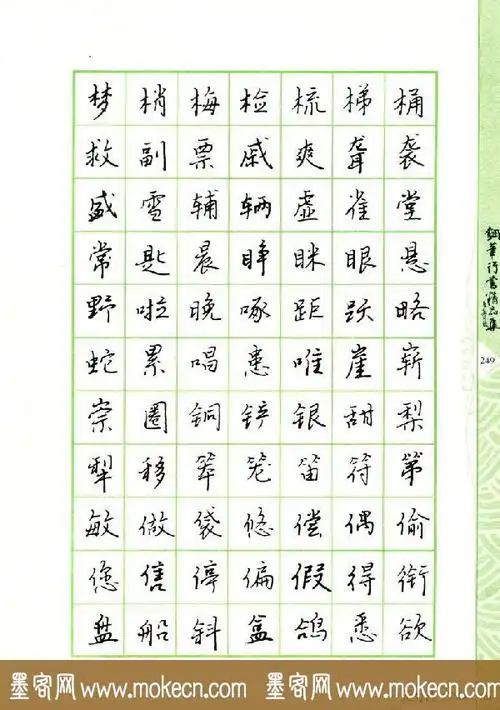 梦梢梅检梳梯桶
救副票戚爽聋袭
盛雪辅辆虚雀堂
常匙晨睁眯眼悬
野啦晚啄距跃略
蛇累唱患唯崖崭
崇圈铜铲银甜梨
犁移笨笼笛符第
敏做袋悠偿偶偷
您售停偏假得衔
盘船斜盒鸽悉欲
钢笔行书精品集
249
墨客网www.mokecn.com 墨客网www.mokecn.com